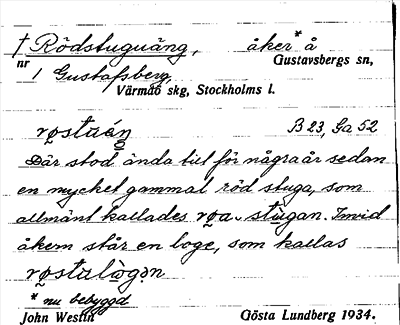 † Rödstuguäng, åker* å
nr 1 Gustafsberg, Gustavsbergs sn,
Värmdö skg, Stockholms l.
røstuáŋ B 23, Ga 52
Där stod ända till för några år sedan
en mycket gammal röd stuga, som
allmänt kallades røa stùgan. Invid
åkern står en loge, som kallas
røstulògən
* nu bebyggd
John Westin Gösta Lundberg 1934.